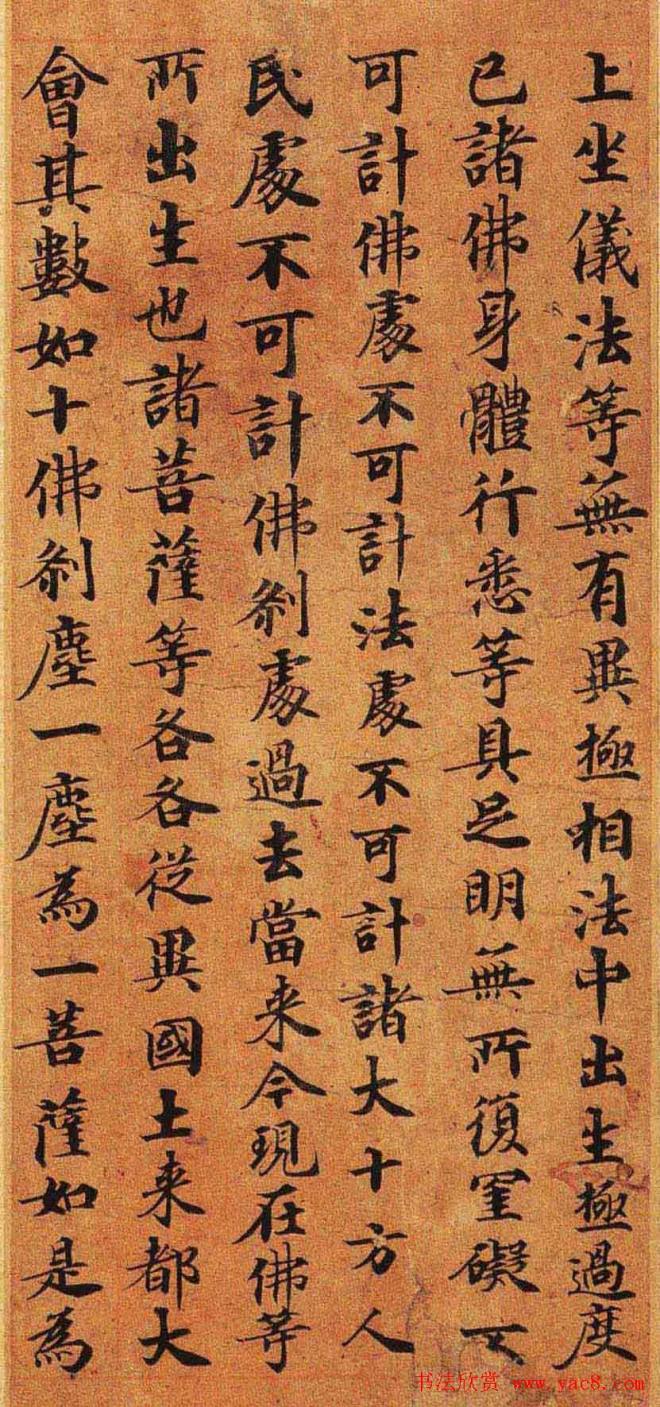 上坐儀法等無有異極相法中出生極過度
已諸佛身體行悉等具足明無所復罣礙不
可計佛處不可計法處不可計諸大十方人
民處不可計佛剎處過去當来今現在佛等
所出生也諸菩薩等各各從異國土来都大
會其數如十佛剎塵一塵為一菩薩如是為
书法欣赏 www.yac8.com